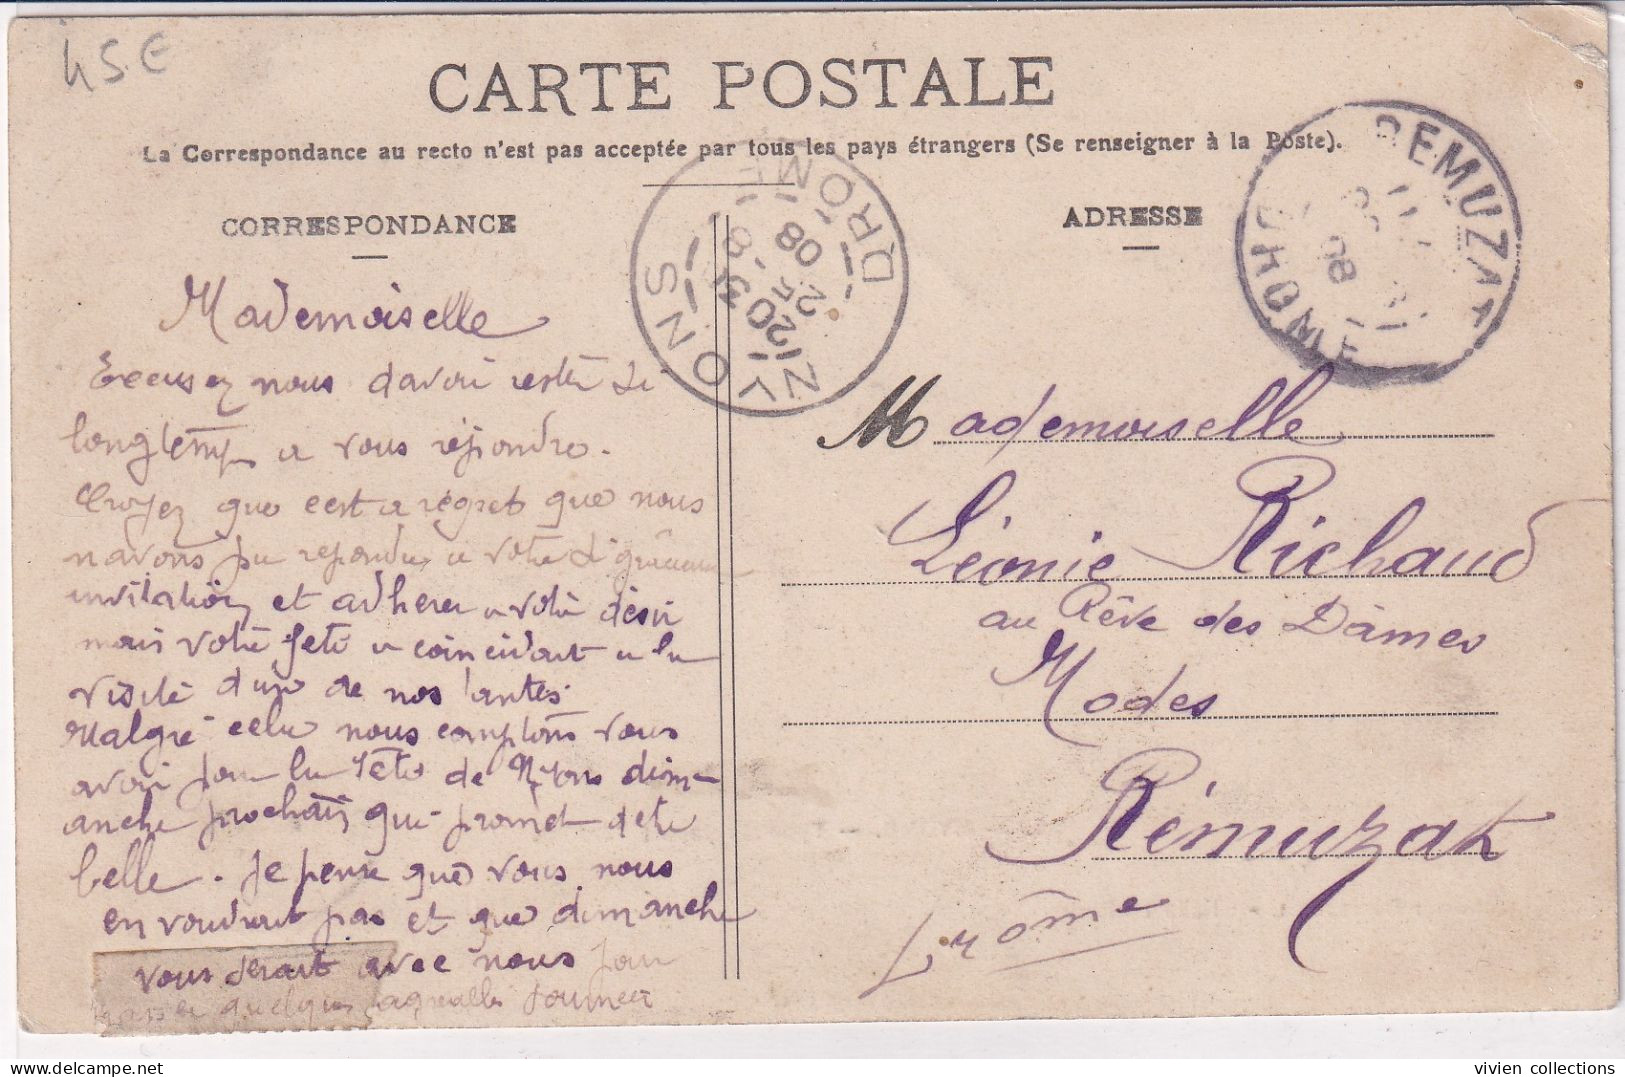 45 E
CARTE POSTALE
La Correspondance au recto n'est pas acceptée par tous les pays étrangers (Se renseigner à la Poste).
CORRESPONDANCE
Mademoiselle
Excusez nous davoir resté si
longtemps a vous répondre.
Croyez que cest a régret que nous
navons pu repondre a votre si gracieuse
invitation et adherer a votre désir
mais votre fete a coincidait a la
visite dune de nos tantes.
Malgré cela nous comptons vous
avoir pour la fête de Nyons dim-
anche prochain qui promet detre
belle. Je pense que vous nous
en voudrait pas et que dimanche
vous serait avec nous pour
passer quelques agreables journées
NYONS
DROME
20 31
25 - 8
08
ADRESSE
REMUZAT
DROME
08
Mademoiselle
Léonie Richaud
au Rêve des Dames
Modes
Rémuzat
Drôme
vivien collections